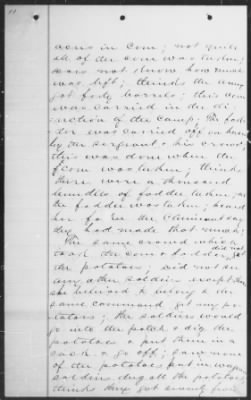 acres in corn; not quite
all of the corn was taken;
does not know how much
was left; thinks the army
got forty barrels; this corn
was carried in the di-
rection of the camp; The fod-
der was carried off on horses
by the sergeant & his crowd;
this was done when the
corn was taken; thinks
there were a thousand
bundles of fodder taken; as
the fodder was taken; heard
her father the Claimant say
they had made that much;
The same crowd which
took the corn & fodder, did not get
the potatoes; did not see
any other soldiers except those
she believed to belong to the
same command get any po-
tatoes; the soldiers would
go into the patch & dig the
potatoes & put them in a
sack & go off; saw none
of the potatoes put in wagons
soldiers dug all the potatoes
thinks they got seventy five